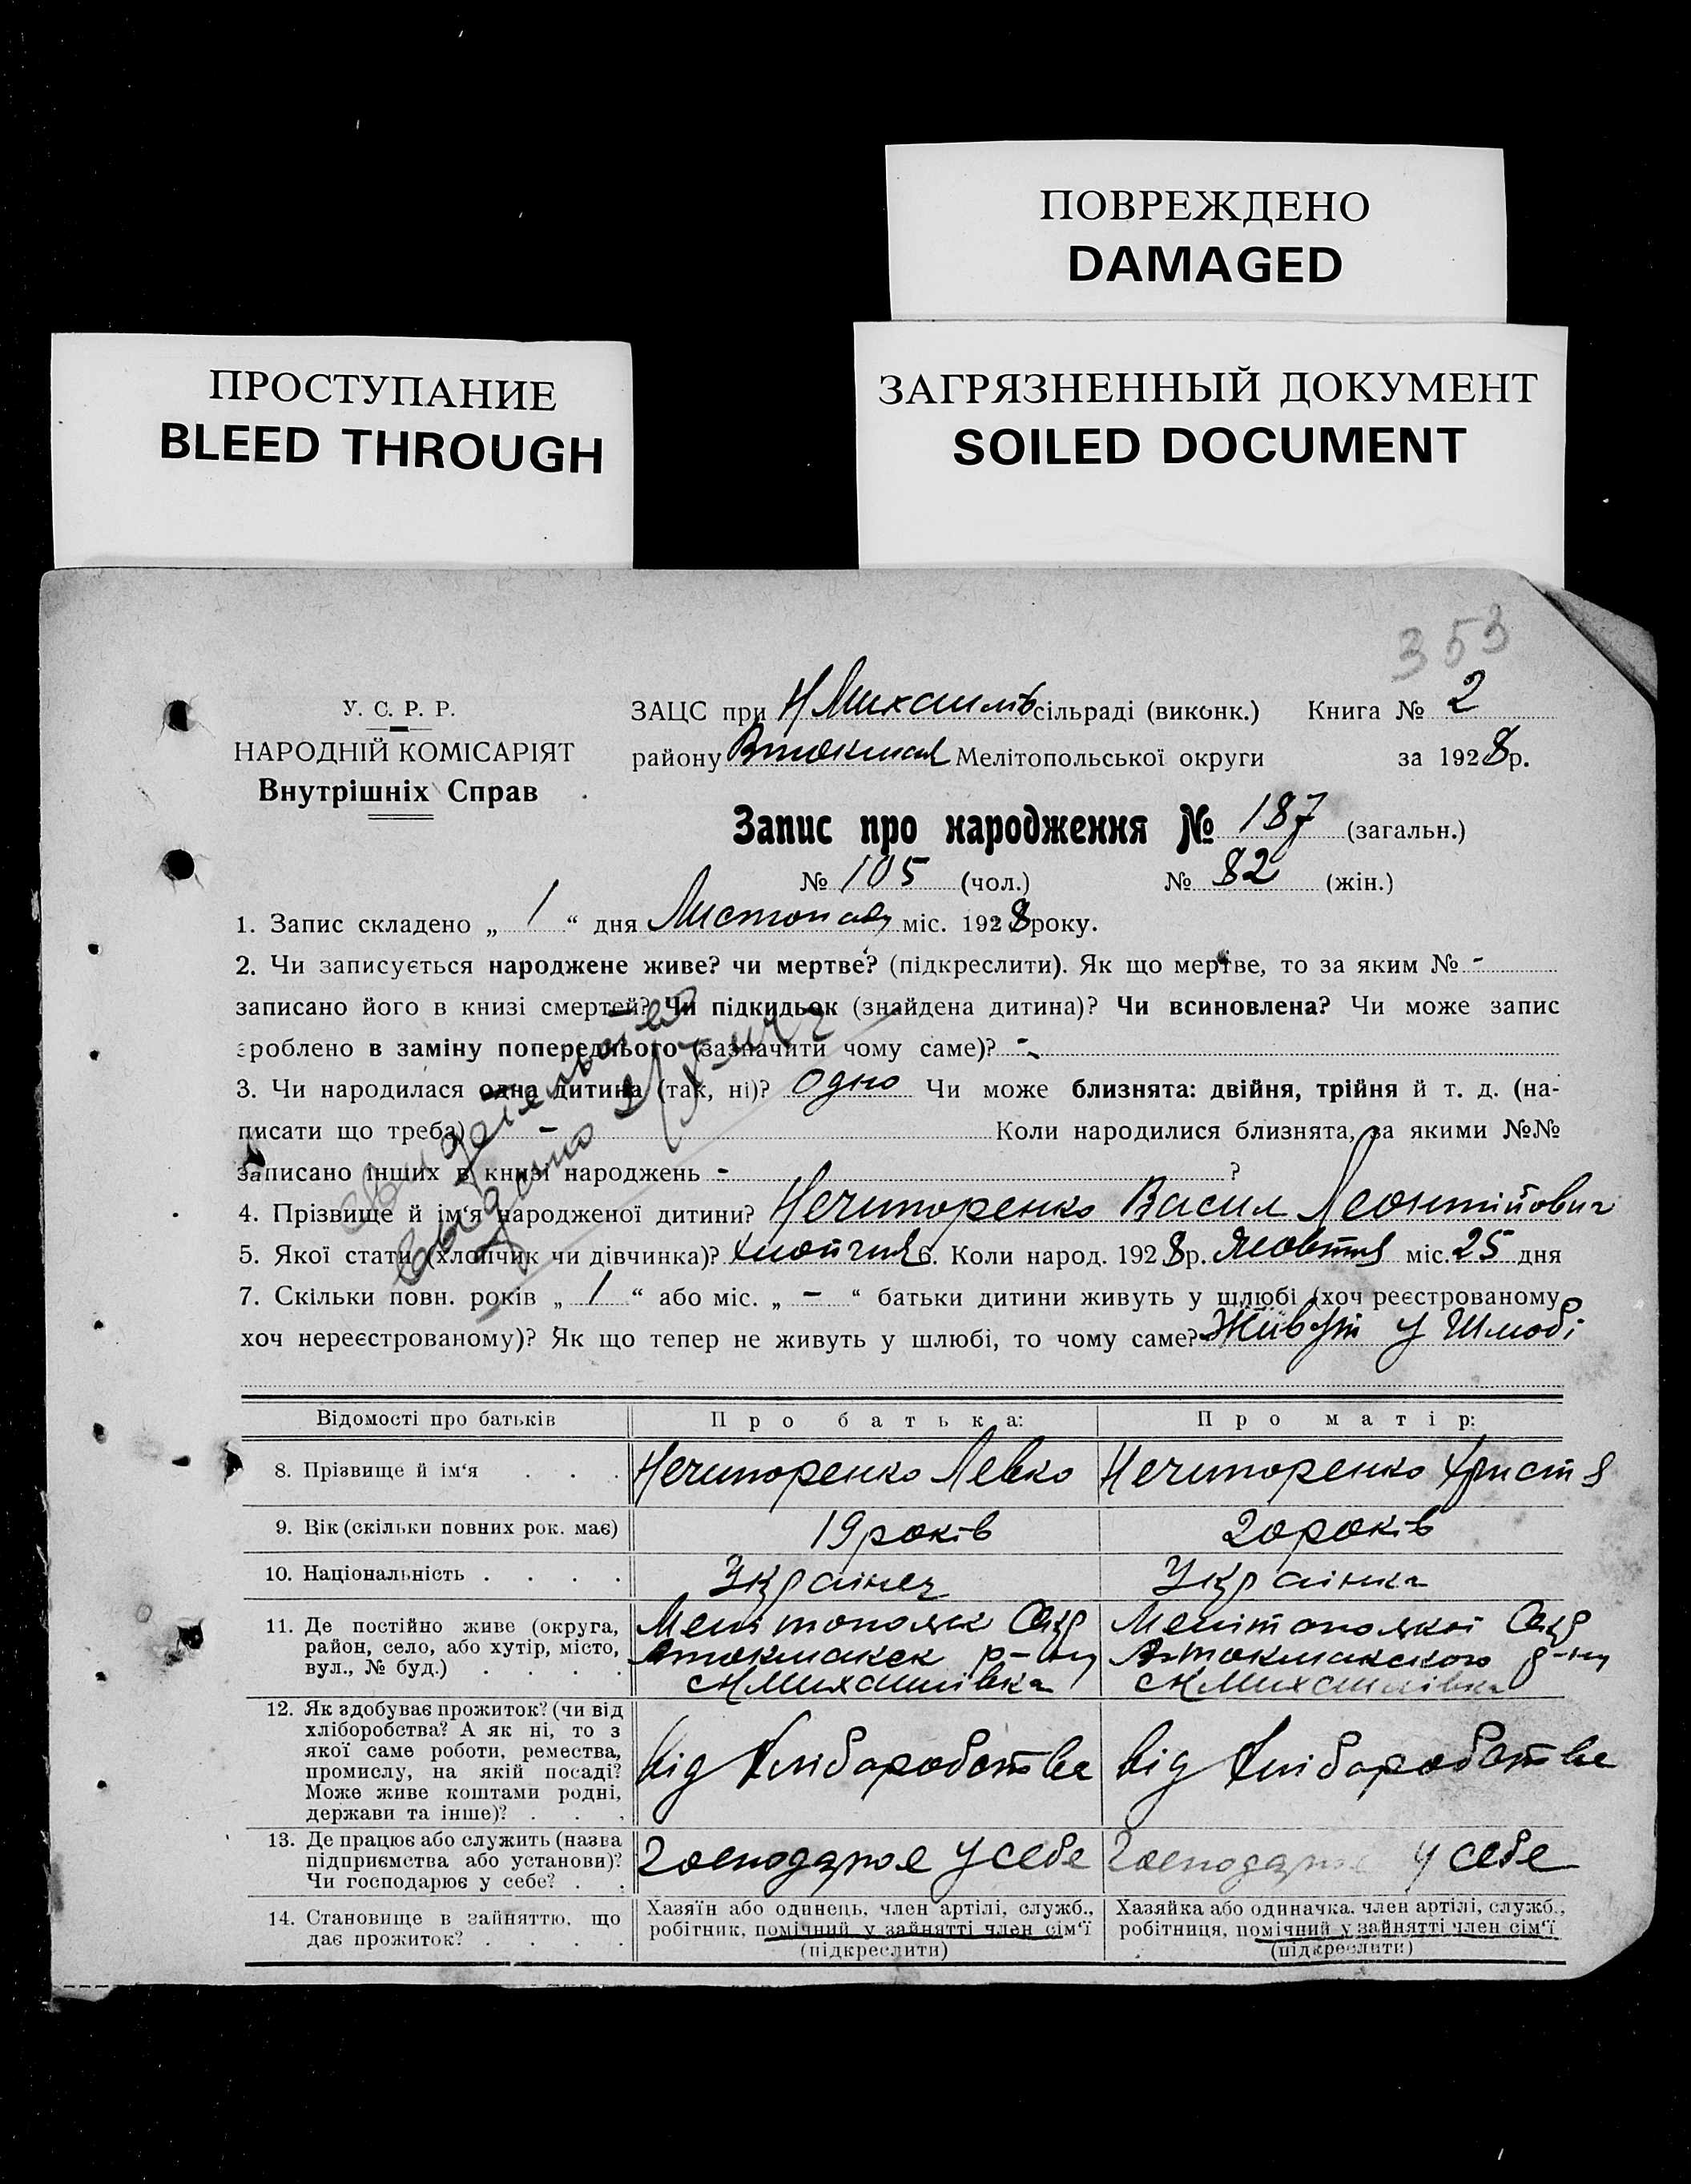 ПОВРЕЖДЕНО
DAMAGED
ПРОСТУПАНИЕ
BLEED THROUGH
ЗАГРЯЗНЕННЫЙ ДОКУМЕНТ
SOILED DOCUMENT
353
У. С. Р. Р.
НАРОДНІЙ КОМІСАРІЯТ
Внутрішніх Справ
ЗАЦС при Н Михайлів сільраді (виконк.) Книга № 2
району Втокмак Мелітопольської округи за 1928 р.
Запис про народження № 187 (загальн.)
№ 105 (чол.) № 82 (жін.)
1. Запис складено „ 1 “ дня Листопаду міс. 1928 року.
2. Чи записується народжене живе? чи мертве? (підкреслити). Як що мертве, то за яким № -
записано його в книзі смертей? Чи підкидьок (знайдена дитина)? Чи всиновлена? Чи може запис
зроблено в заміну попереднього (зазначити чому саме)? -
3. Чи народилася одна дитина (так, ні)? Одно Чи може близнята: двійня, трійня й т. д. (на-
писати що треба) - Коли народилися близнята, за якими №№
записано інших в книзі народжень - ?
4. Прізвище й ім‘я народженої дитини? Нечипоренко Васил Леонтійович
5. Якої стати (хлопчик чи дівчинка)? хлопчик 6. Коли народ. 1928 р. Жовтня міс. 25 дня
7. Скільки повн. років „ 1 “ або міс. „ - “ батьки дитини живуть у шлюбі (хоч реєстрованому
хоч нереєстрованому)? Як що тепер не живуть у шлюбі, то чому саме? Живут у Шлюбі
Відомості про батьків Про батька: Про матір:
8. Прізвище й ім‘я . . . Нечипоренко Левко Нечипоренко Христя
9. Вік (скільки повних рок. має) 19 років 20 років
10. Національність . . . . Українец Українка
11. Де постійно живе (округа,
район, село, або хутір, місто,
вул., № буд.) . . . .
Мелітопольск Окр
Втокмакск р-ну
с Н Михайлівка
Мелітопольскої Окр
Втокмакского р-ну
с Н Михайлівка
12. Як здобуває прожиток? (чи від
хліборобства? А як ні, то з
якої саме роботи, ремества,
промислу, на якій посаді?
Може живе коштами родні,
держави та інше)? . . .
від Хліборобства
від Хліборобства
13. Де працює або служить (назва
підприємства або установи)?
Чи господарює у себе? . .
Господарює у себе
Господарює у себе
14. Становище в зайняттю, що
дає прожиток? . . . .
Хазяїн або одинець, член артілі, служб.,
робітник, помічний у зайнятті член сім‘ї
(підкреслити)
Хазяйка або одиначка, член артілі, служб.,
робітниця, помічний у зайнятті член сім‘ї
(підкреслити)